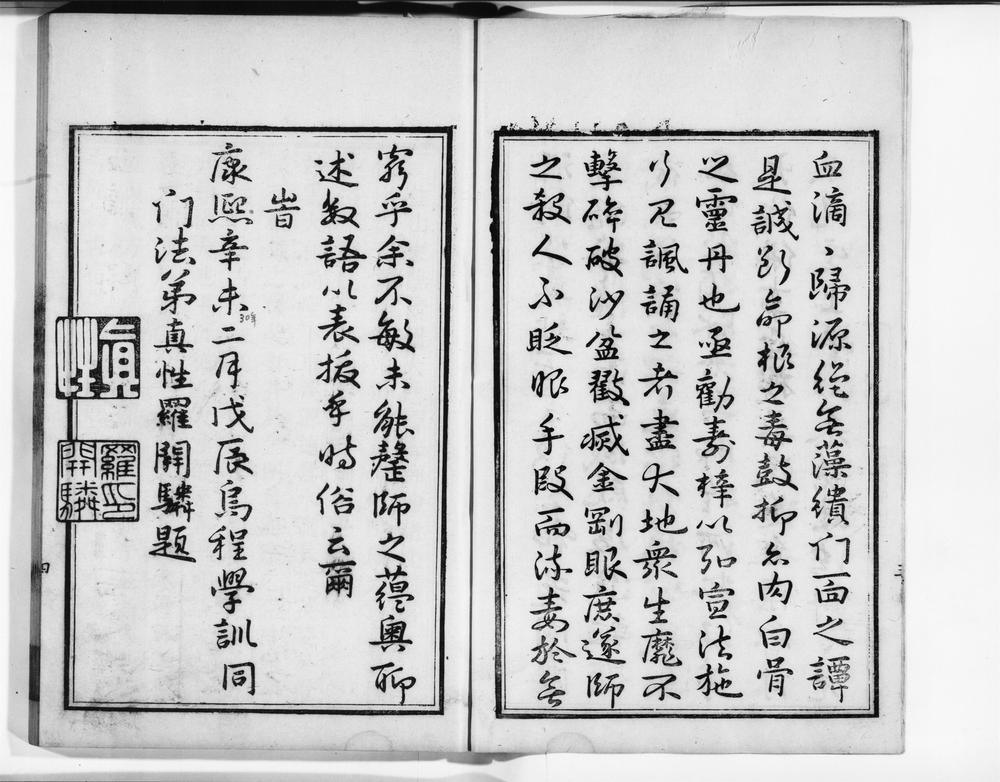 血滴丶歸源從無藻繢门面之譚
是誠斷命根之毒鼓抑亦肉白骨
之靈丹也亟勸壽梓以弘宣法施
以見諷誦之者盡大地眾生靡不
擊碎破沙盆戳滅金剛眼庶遂師
之殺人不眨眼手段而流毒於無
窮乎余不敏未能罄師之蘊奧聊
述數語以表扳手時俗云爾
旹
康熙辛未二月戊辰烏程學訓同
30年
门法弟真性羅開驎題
真性
羅開驎印
三
四